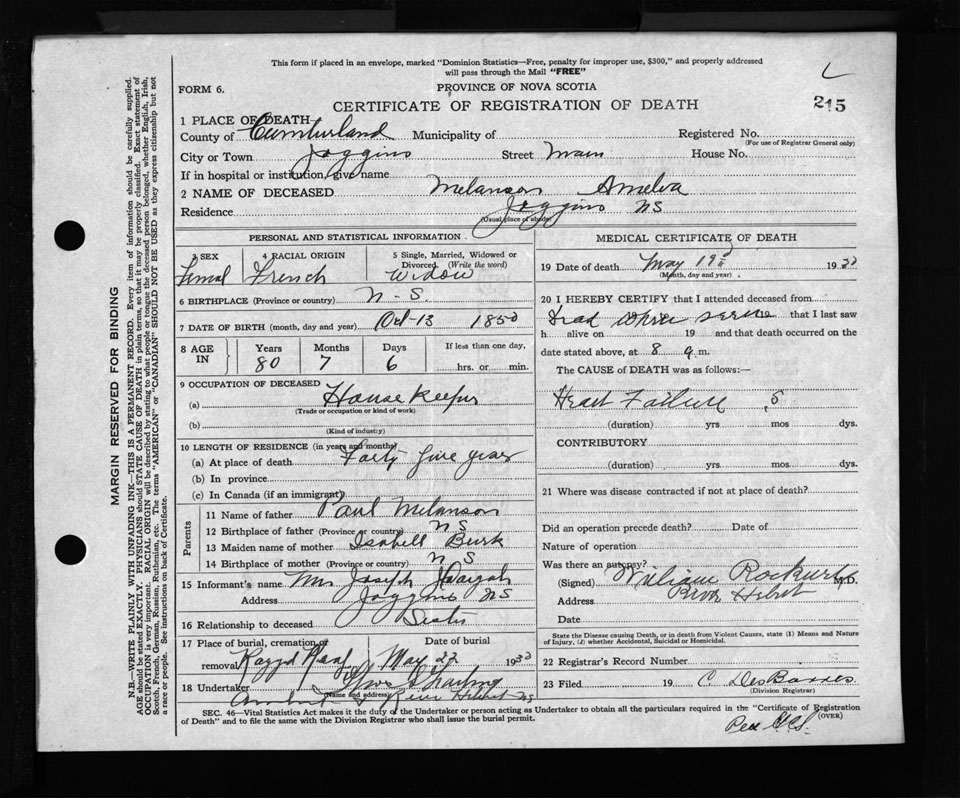 This form if placed in an envelope, marked "Dominion Statistics—Free, penalty for improper use, $300," and properly addressed
will pass through the Mail "FREE"
FORM 6.
PROVINCE OF NOVA SCOTIA
CERTIFICATE OF REGISTRATION OF DEATH
215
1 PLACE OF DEATH
County of Cumberland Municipality of Registered No.
(For use of Registrar General only)
City or Town Joggins Street Main House No.
If in hospital or institution, give name
2 NAME OF DECEASED Melanson Amelia
Residence Joggins NS
(Usual place of abode)
PERSONAL AND STATISTICAL INFORMATION
3 SEX 4 RACIAL ORIGIN 5 Single, Married, Widowed or
Divorced. (Write the word)
Femal French Widow
6 BIRTHPLACE (Province or country) N-S.
7 DATE OF BIRTH (month, day and year) Oct-13 1850
8 AGE IN Years Months Days If less than one day,
80 7 6 hrs. or min.
9 OCCUPATION OF DECEASED
(a) House Keeper
(Trade or occupation or kind of work)
(b)
(Kind of industry)
10 LENGTH OF RESIDENCE (in years and months)
(a) At place of death Forty five years
(b) In province
(c) In Canada (if an immigrant)
Parents
11 Name of father Paul Melanson
12 Birthplace of father (Province or country) NS
13 Maiden name of mother Isabell Burk
14 Birthplace of mother (Province or country) N S
15 Informant's name Mrs Joseph
Address Joggins NS
16 Relationship to deceased
17 Place of burial, cremation or Date of burial
removal May 22 19
18 Undertaker
(Name and address)
MEDICAL CERTIFICATE OF DEATH
19 Date of death May 19th 19
(Month, day and year)
20 I HEREBY CERTIFY that I attended deceased from
that I last saw
h alive on 19 and that death occurred on the
date stated above, at 8 a m.
The CAUSE of DEATH was as follows:—
Heart Failure
(duration) yrs mos dys.
CONTRIBUTORY
(duration) yrs. mos. dys.
21 Where was disease contracted if not at place of death?
Did an operation precede death? Date of
Nature of operation
Was there an autopsy?
(Signed) William M.D.
Address River Hebert
Date
State the Disease causing Death, or in death from Violent Causes, state (1) Means and Nature
of Injury, (2) whether Accidental, Suicidal or Homicidal.
22 Registrar's Record Number
23 Filed 19 C DesBarres
(Division Registrar)
SEC. 46—Vital Statistics Act makes it the duty of the Undertaker or person acting as Undertaker to obtain all the particulars required in the "Certificate of Registration
of Death" and to file the same with the Division Registrar who shall issue the burial permit. (OVER)
MARGIN RESERVED FOR BINDING
N.B.—WRITE PLAINLY WITH UNFADING INK—THIS IS A PERMANENT RECORD. Every item of information should be carefully supplied.
AGE should be stated EXACTLY. PHYSICIANS should STATE CAUSE OF DEATH in plain terms, so that it may be properly classified. Exact statement of
OCCUPATION is very important. RACIAL ORIGIN will be described by stating to what people or tongue the deceased person belonged, whether English, Irish,
Scotch, French, German, Russian, Ruthenian, etc. The terms "AMERICAN" or "CANADIAN" SHOULD NOT BE USED as they express citizenship but not
a race or people. See instructions on back of Certificate.